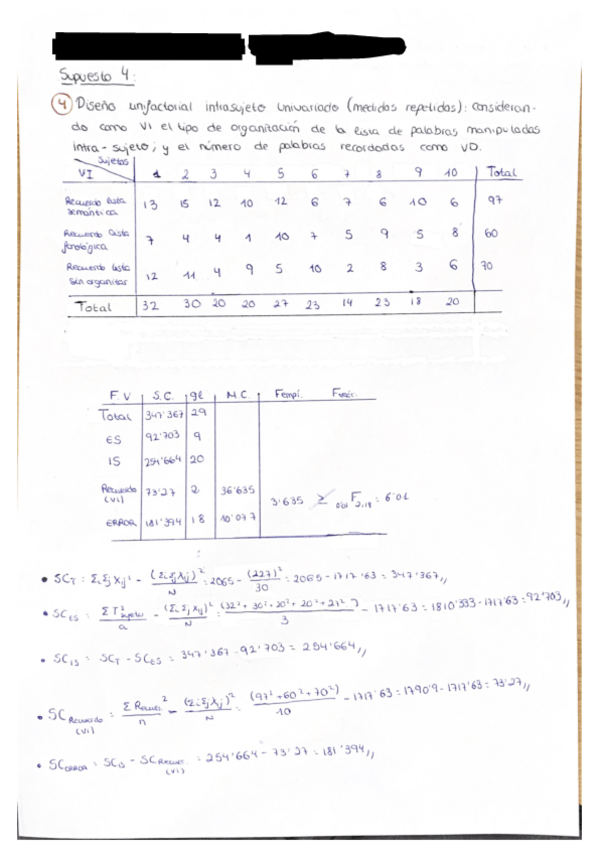 Supuesto 4:
4 Diseño unifactorial intrasujeto univariado (medidas repetidas): consideran-
do como VI el tipo de organización de la lista de palabras manipuladas
intra-sujeto; y el número de palabras recordadas como VD.
Sujetos
VI 1 2 3 4 5 6 7 8 9 10 Total
Recuerdo lista semántica 13 15 12 10 12 6 7 6 10 6 97
Recuerdo lista fonológica 7 4 4 1 10 7 5 9 5 8 60
Recuerdo lista sin organizar 12 11 4 9 5 10 2 8 3 6 70
Total 32 30 20 20 27 23 14 23 18 20
F.V S.C. gl M.C. Fempí. Fteór.
Total 347'367 29
ES 92'703 9
IS 254'664 20
Recuerdo (VI) 73'27 2 36'635 3'635 ≥ 0'01 F2,18 = 6'01
ERROR 181'394 18 10'077
• SCT = ΣiΣj Xij² - (ΣiΣj Xij)² / N = 2065 - (227)² / 30 = 2065 - 1717'63 = 347'367,,
• SCES = ΣT²sujeto / a - (ΣiΣj Xij)² / N = (32² + 30² + 20² + 20² + 27²) / 3 - 1717'63 = 1810'333 - 1717'63 = 92'703,,
• SCIS = SCT - SCES = 347'367 - 92'703 = 254'664,,
• SCRecuerdo (VI) = Σ Recuer.² / n - (ΣiΣj Xij)² / N = (97² + 60² + 70²) / 10 - 1717'63 = 1790'9 - 1717'63 = 73'27,,
• SCERROR = SCIS - SCRecuer. (VI) = 254'664 - 73'27 = 181'394,,